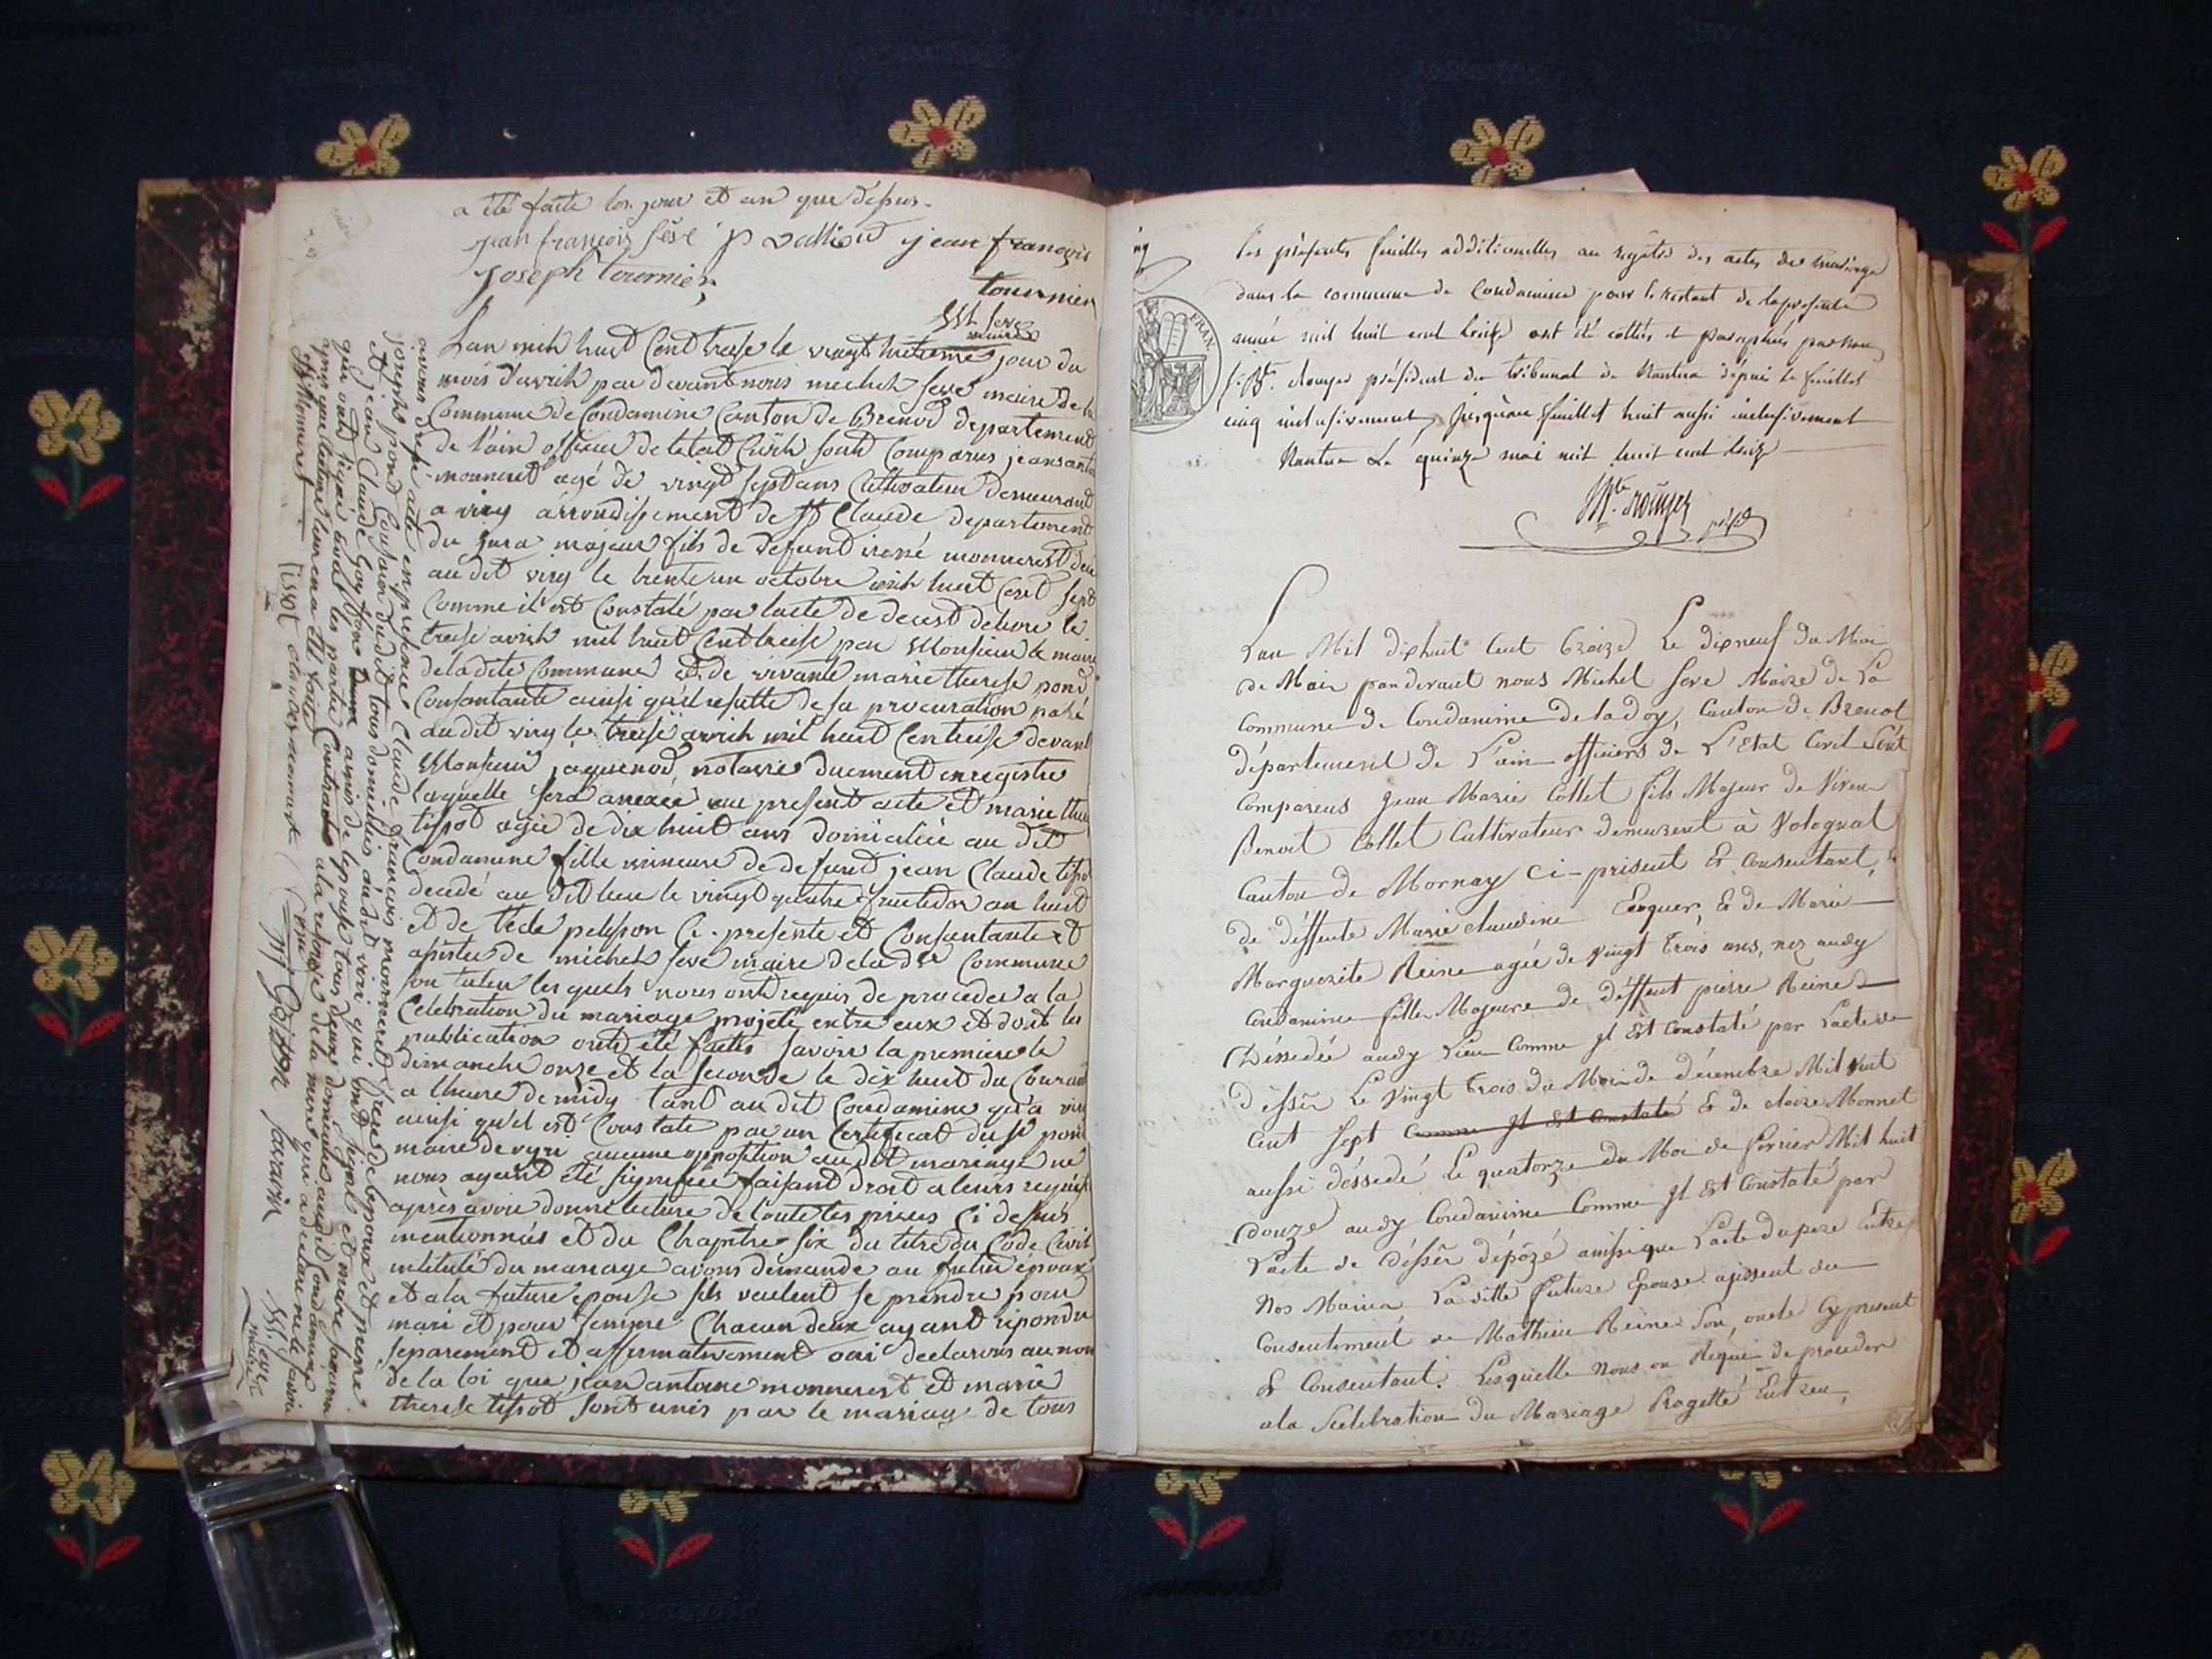 a été faite les jour et an que dessus.
jean françois seve jean françois
joseph tournier tournier
M seve
maire
Lan mil huit Cent treise le vingt huitieme jour du
mois d'avril par devant nous michel seve maire de la
Commune de Condamine Canton de Brenod departement
de l'ain officier de letat Civil sont Comparus jean antoi
monneret agé de vingt sept ans Cultivateur demeurant
a viry arrondissement de St Claude departement
du jura majeur fils de defunt irené monneret décé
au dit viry le trente un octobre mil huit Cent sept
Comme il est Constaté par lacte de deces delivré le
treise avril mil huit Cent treise par Monsieur le maire
de ladite Commune et de vivante marie therese pond
Consantante ainsi qu'il resulte de sa procuration passé
audit viry le treise avril mil huit Cent treise devant
Monsieur jaquenod notaire duement enregistre
laquelle sera anexée au present acte et marie the
tissot agée de dix huit ans domiciliée au dit
Condamine fille mineure de defunt jean Claude tisso
decedé au dit lieu le vingt quatre fructidor an huit
et de tecle pelisson Ci-presente et Consantante et
assistée de michel seve maire de ladte Commune
son tuteur les quels nous ont requis de proceder a la
Celebration du mariage projeté entre eux et dont les
publication ont été faites savoir la premiere le
dimanche onse et la seconde le dix huit du Courant
a lheure de midy tant au dit Condamine qu'a viry
ainsi qu'il est Constaté par un Certificat du sr pond
maire de vyri aucune opposition au dit mariage ne
nous ayant été signifiée faisant droit a leurs requis
après avoir donné lecture de toutes les pieces Ci dessus
mentionnées et du Chapitre six du titre du Code Civil
intitulé du mariage avons demandé au futur epoux
et a la future épouse sils veulent se prendre pour
mari et pour femme Chacun deux ayant repondu
separement et affirmativement oui declarons au nom
de la loi que jean antoine monneret et marie
therese tissot sont unis par le mariage de tous
avons dressé acte en presence Claude françois monneret frere de lepoux et pierre
joseph pond Cousin du dit tous domiciliés au dit viri qui ont signé et maire savarin
et jean Claude Goyffon amis de lepouse tous deux domiciliés audit Condamine
qui ont signé avec les partie Contractes a la reserve de la mere qui a declaré ne le savoir
apres que lecture leur en a été faite
Monneret tissot claude monneret pond Goiffon savarin M seve
maire
les présentes feuilles additionelles au régistre des actes de mariage
dans la commune de Condamine pour le restant de la présente
année mil huit cent treize ont été cottés et paraphés par nous
J. Bte. Rouyer président du tribunal de Nantua depuis le feuillet
cinq inclusivement, jusqu'au feuillet huit aussi inclusivement
Nantua Le quinze mai mil huit cent treize
FRAN.
Bte. Rouyer
présdt
Lan Mil dixhuit Cent treize Le dixneuf du Moi
de Mai pardevant nous Michel seve Maire de La
Commune de Condamine de la doy, Canton de Brenot
département de L'ain officiers de L'Etat Civil Sont
Compareus Jean Marie Collet fils Majeur de Viven
Benoit Collet Cultivateur demurent à Volognat
Canton de Mornay Ci-présent Et Consentant,
de déffunte Marie claudine Et de Marie
Marguerite Reine agée de vingt trois ans, nez audy
Condamine fille Majeure de déffent pierre Reine
Déssedée audy Lieu Comme Jl Est Constaté par L'acte de
déssés Le Vingt trois du Moi de décembre Mil huit
Cent Sept Comme Jl Est Constaté Et de claire Monnet
aussi déssedé Le quatorze du Moi de fevrier Mil huit
Douze audy Condamine Comme Jl Est Constaté par
L'acte de déssés dépôzé ainsi que L'acte du pere Entre
Nos Mains La ditte future Epouse ajissent du
Consentement de Mathieu Reine Son oncle Cy present
Et Consentant. Lesquelle nous on Requi de proceder
ala Selebration du Mariage Progetté Entreu,